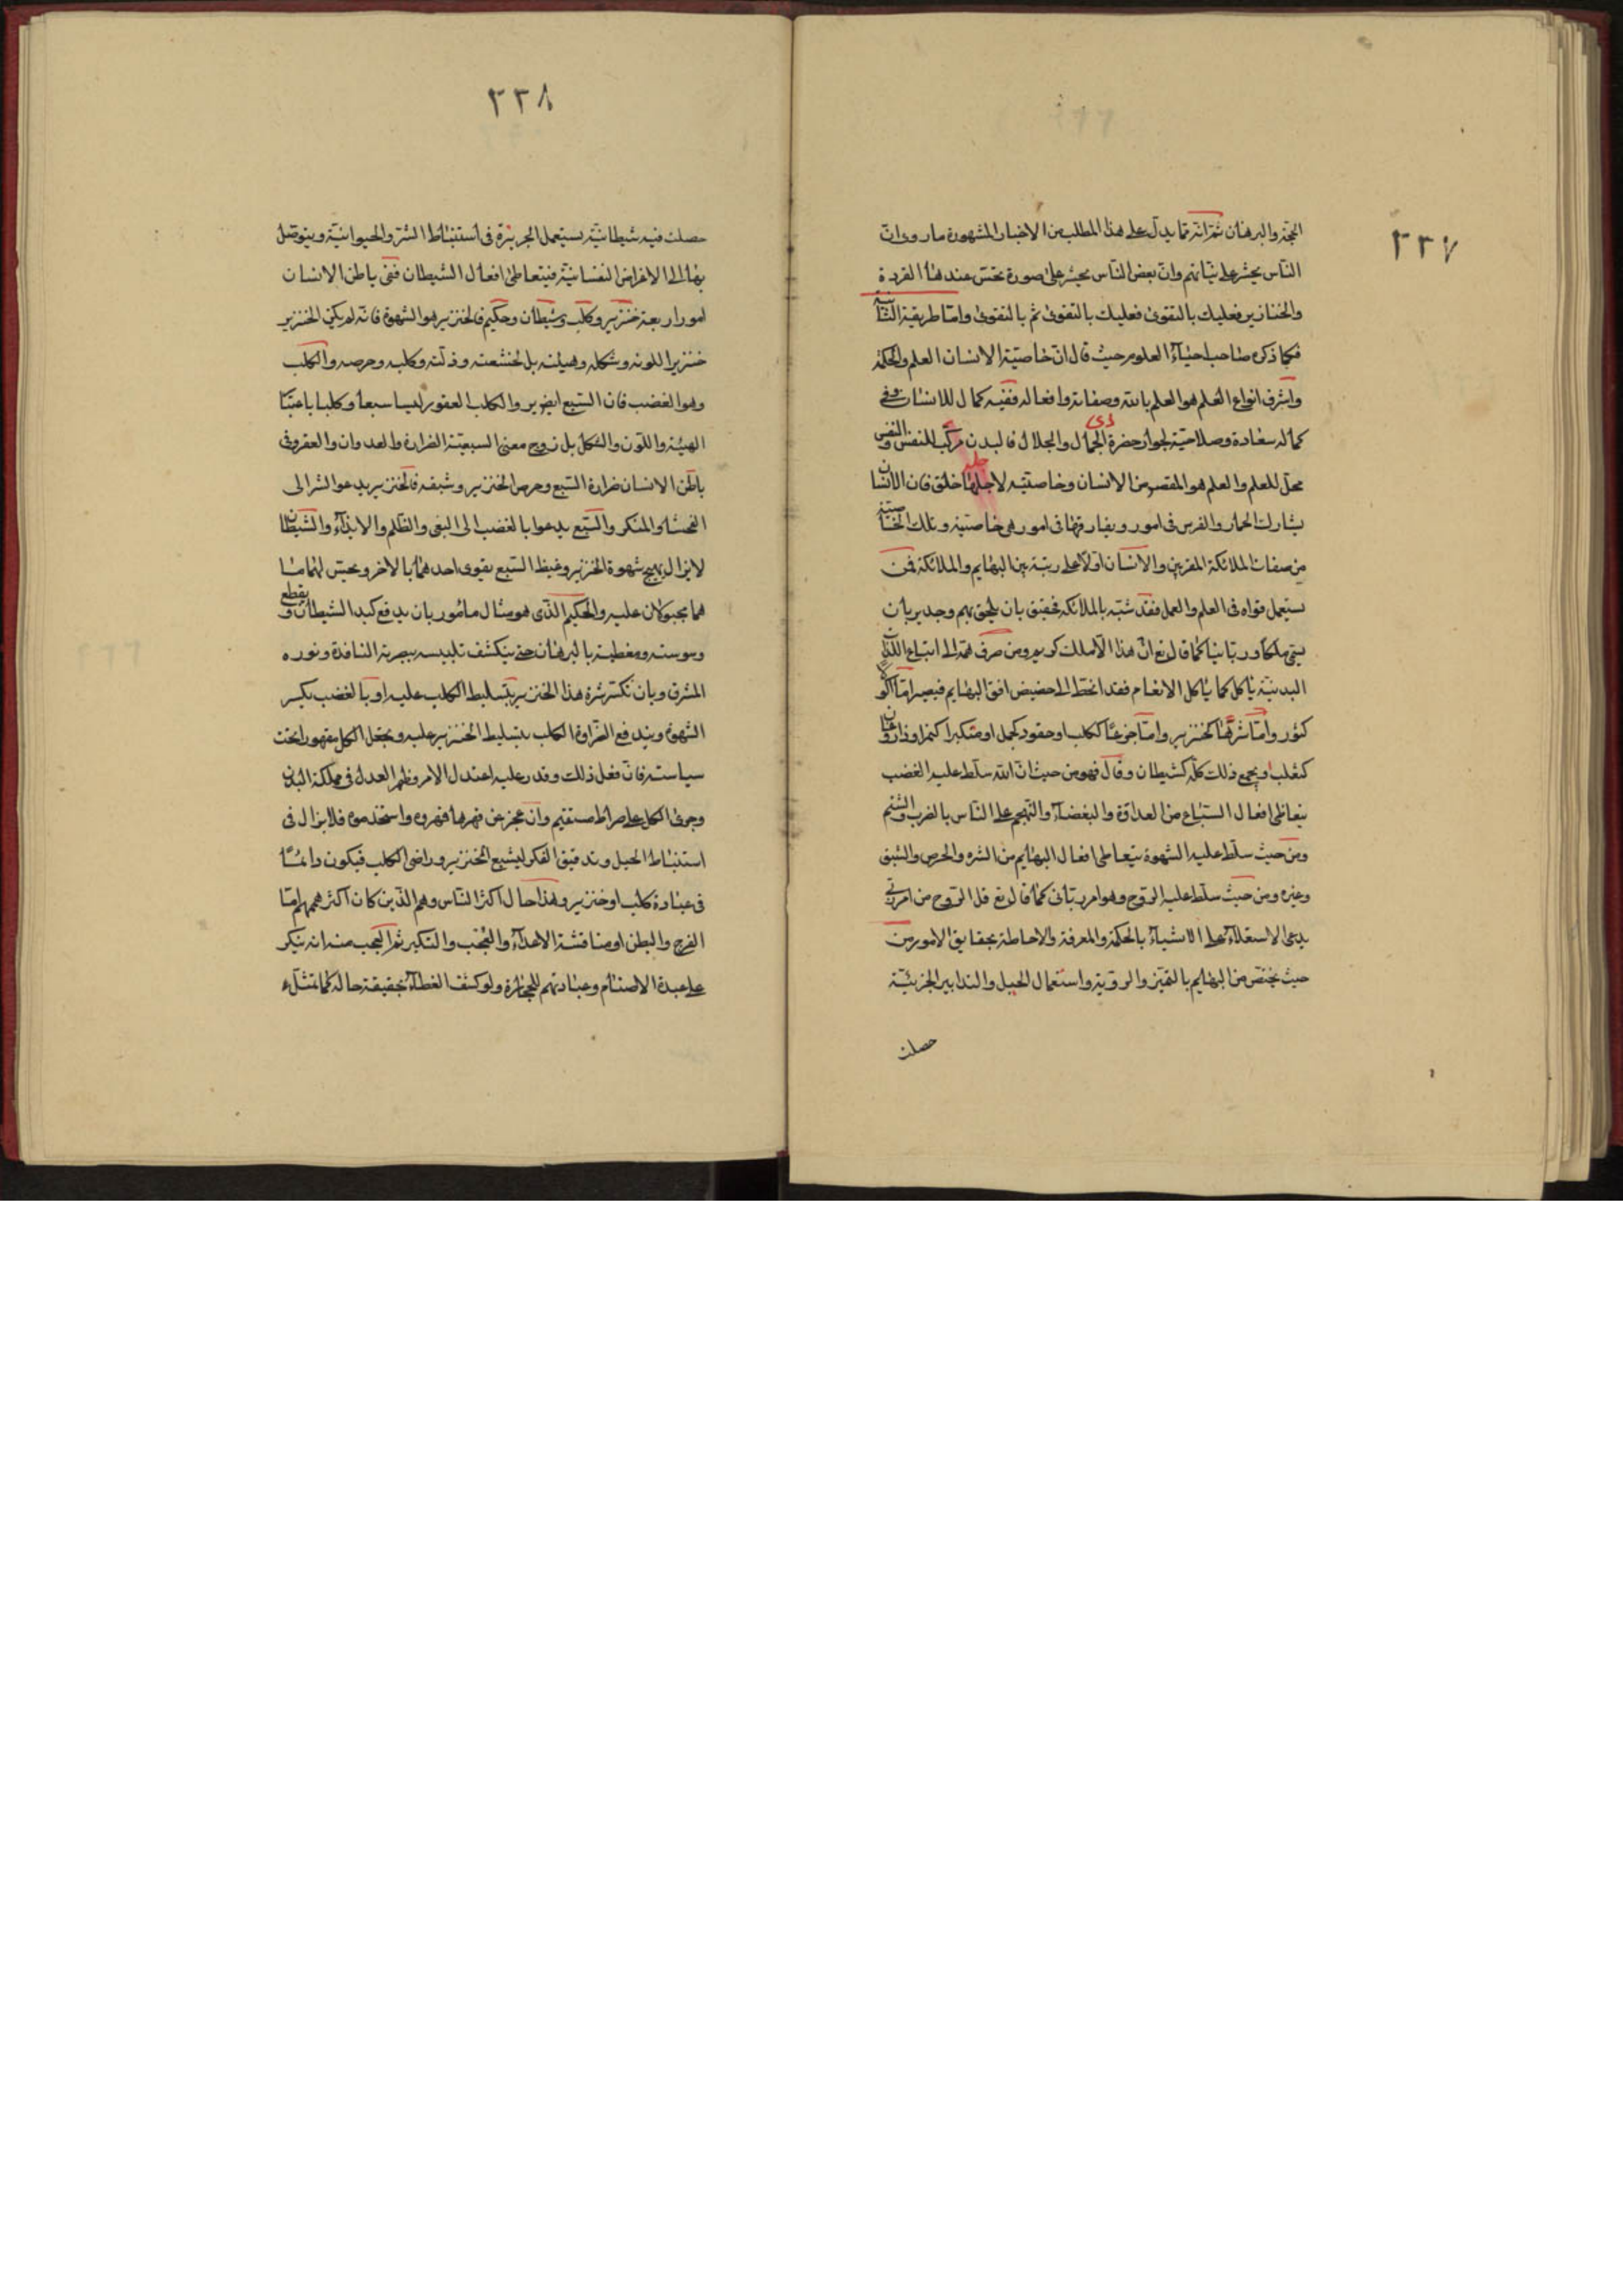 ٣٣٧
الحجة والبرهان ثم انه مما يدل على هذا المطلب من الاخبار المشهورة ما روى ان
الناس يحشر على نياتهم وان بعض الناس يحشر على صورة تحسن عندها القردة
والخنازير فعليك بالتقوى فعليك بالتقوى ثم بالتقوى واما طريقة الثانية
فكما ذكره صاحب احياء العلوم حيث قال ان خاصية الانسان العلم والحكمة
واشرف انواع العلم هو العلم بالله وصفاته وافعاله ففيه كمال للانسان وفى
كماله سعادة وصلاحية لجوار حضرة ذى الجمال والجلال فالبدن مركب للنفس والنفس
محل للعلم والعلم هو المقصود من الانسان وخاصيته لاجلها خلق فان الانسان
يشارك الحمار والفرس فى امور ويفارقها فى امور هى خاصيته وتلك الخاصية
من صفات الملائكة المقربين والانسان اولا على رتبة بين البهايم والملائكة فمن
يستعمل قواه فى العلم والعمل فقد شبه بالملائكة فحقيق بان يلحق بهم وجدير بان
يسمى ملكا وربانيا كما قال تع ان هذا الا ملك كريم ومن صرف همته الى اتباع اللذات
البدنية ياكل كما ياكل الانعام فقد انحط الى حضيض افق البهايم فيصير اما اكولا
كثور واما شرها كخنزير واما جوعا ككلب او حقود كجمل او متكبرا كنمر او ذا روغان
كثعلب او يجمع ذلك كله كشيطان وقال فهو من حيث ان الله سلط عليه الغضب
يتعاطى افعال السباع من العداوة والبغضاء والتهجم على الناس بالضرب والشتم
ومن حيث سلط عليه الشهوة يتعاطى افعال البهايم من الشره والحرص والشبق
وغيره ومن حيث سلط عليه الروح وهو امر ربانى كما قال تع قل الروح من امر ربى
يدعى الاستعلاء على الاشياء بالحكمة والمعرفة والاحاطة بحقايق الامور من
حيث يختص من البهايم بالتميز والروية واستعمال الحيل والتدابير الجزئية
حصلت
٣٣٨
حصلت فيه شيطانية يستعمل الجربزة فى استنباط الشر والحيوانية ويتوصل
بها الى الاغراض النفسانية فيتعاطى افعال الشيطان ففى باطن الانسان
امور اربعة خنزير وكلب وشيطان وحكيم فالخنزير هو الشهوة فانه لم يكن الخنزير
خنزيرا للونه وشكله وهيئته بل لخشعته وذلته وكلبه وحرصه والكلب
وهو الغضب فان السبع الضرير والكلب العقور ليسا سبعا وكلبا باعتبار
الهيئة واللون والشكل بل روح معنى السبعية الضراوة والعدوان والعقر وفى
باطن الانسان ضراوة السبع وحرص الخنزير وشبقه فالخنزير يدعو الشر الى
الفحشاء والمنكر والسبع يدعوا بالغضب الى البغى والظلم والايذاء والشيطان
لا يزال يهيج شهوة الخنزير وغيظ السبع يقوى احدهما بالاخر ويحسن لهما ما
هما مجبولان عليه والحكيم الذى هو مثال مامور بان يدفع كيد الشيطان ويقطع
وسوسته ومغطيته بالبرهان حتى ينكشف تلبيسه ببصيرته النافذة ونوره
المشرق وبان تكسر شره هذا الخنزير بتسليط الكلب عليه او بالغضب يكسر
الشهوة ويندفع الضراوة الكلب بتسليط الخنزير عليه ويجعل الكل مقهورا تحت
سياسته فان فعل ذلك وقدر عليه اعتدل الامر وظهر العدل فى مملكة البدن
وجرى الكل على صراط مستقيم وان عجز عن قهرها قهروه واستخدموه فلا يزال فى
استنباط الحيل وتدقيق الفكر ليشبع الخنزير وراضى الكلب فيكون دائما
فى عبادة كلب او خنزير وهذا حال اكثر الناس وهم الذين كان اكثر هممهم اما
الفرج والبطن او مناقشة الاعداء والتجنب والتكبر ثم العجب منه انه ينكر
على عبدة الاصنام وعبادتهم للحجارة ولو كشف الغطاء بحقيقة حاله كما تمثل